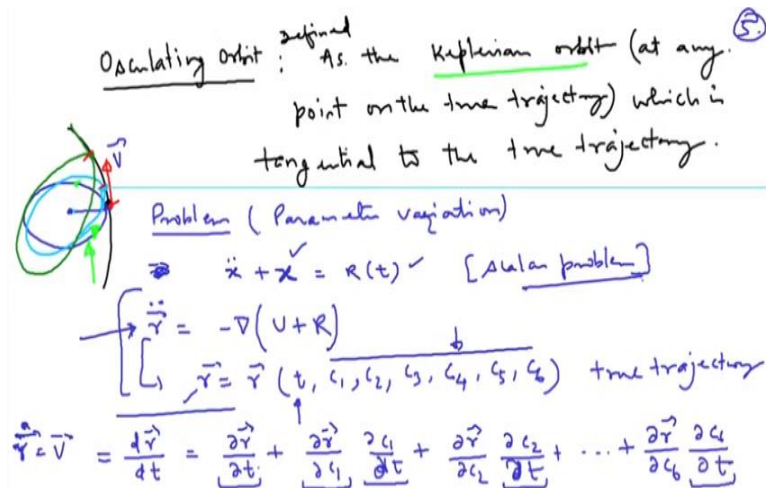 5.
Osculating Orbit : Defined As the Keplerian orbit (at any
point on the true trajectory) which is
tangential to the true trajectory.
V⃗
Problem (Parameter variation)
ẍ + x = R(t) [scalar problem]
r⃗̈ = -∇(U+R)
r⃗ = r⃗ (t, c₁, c₂, c₃, c₄, c₅, c₆) true trajectory
r⃗̇ = V⃗ = dr⃗/dt = ∂r⃗/∂t + ∂r⃗/∂c₁ ∂c₁/∂t + ∂r⃗/∂c₂ ∂c₂/∂t + ... + ∂r⃗/∂c₆ ∂c₆/∂t